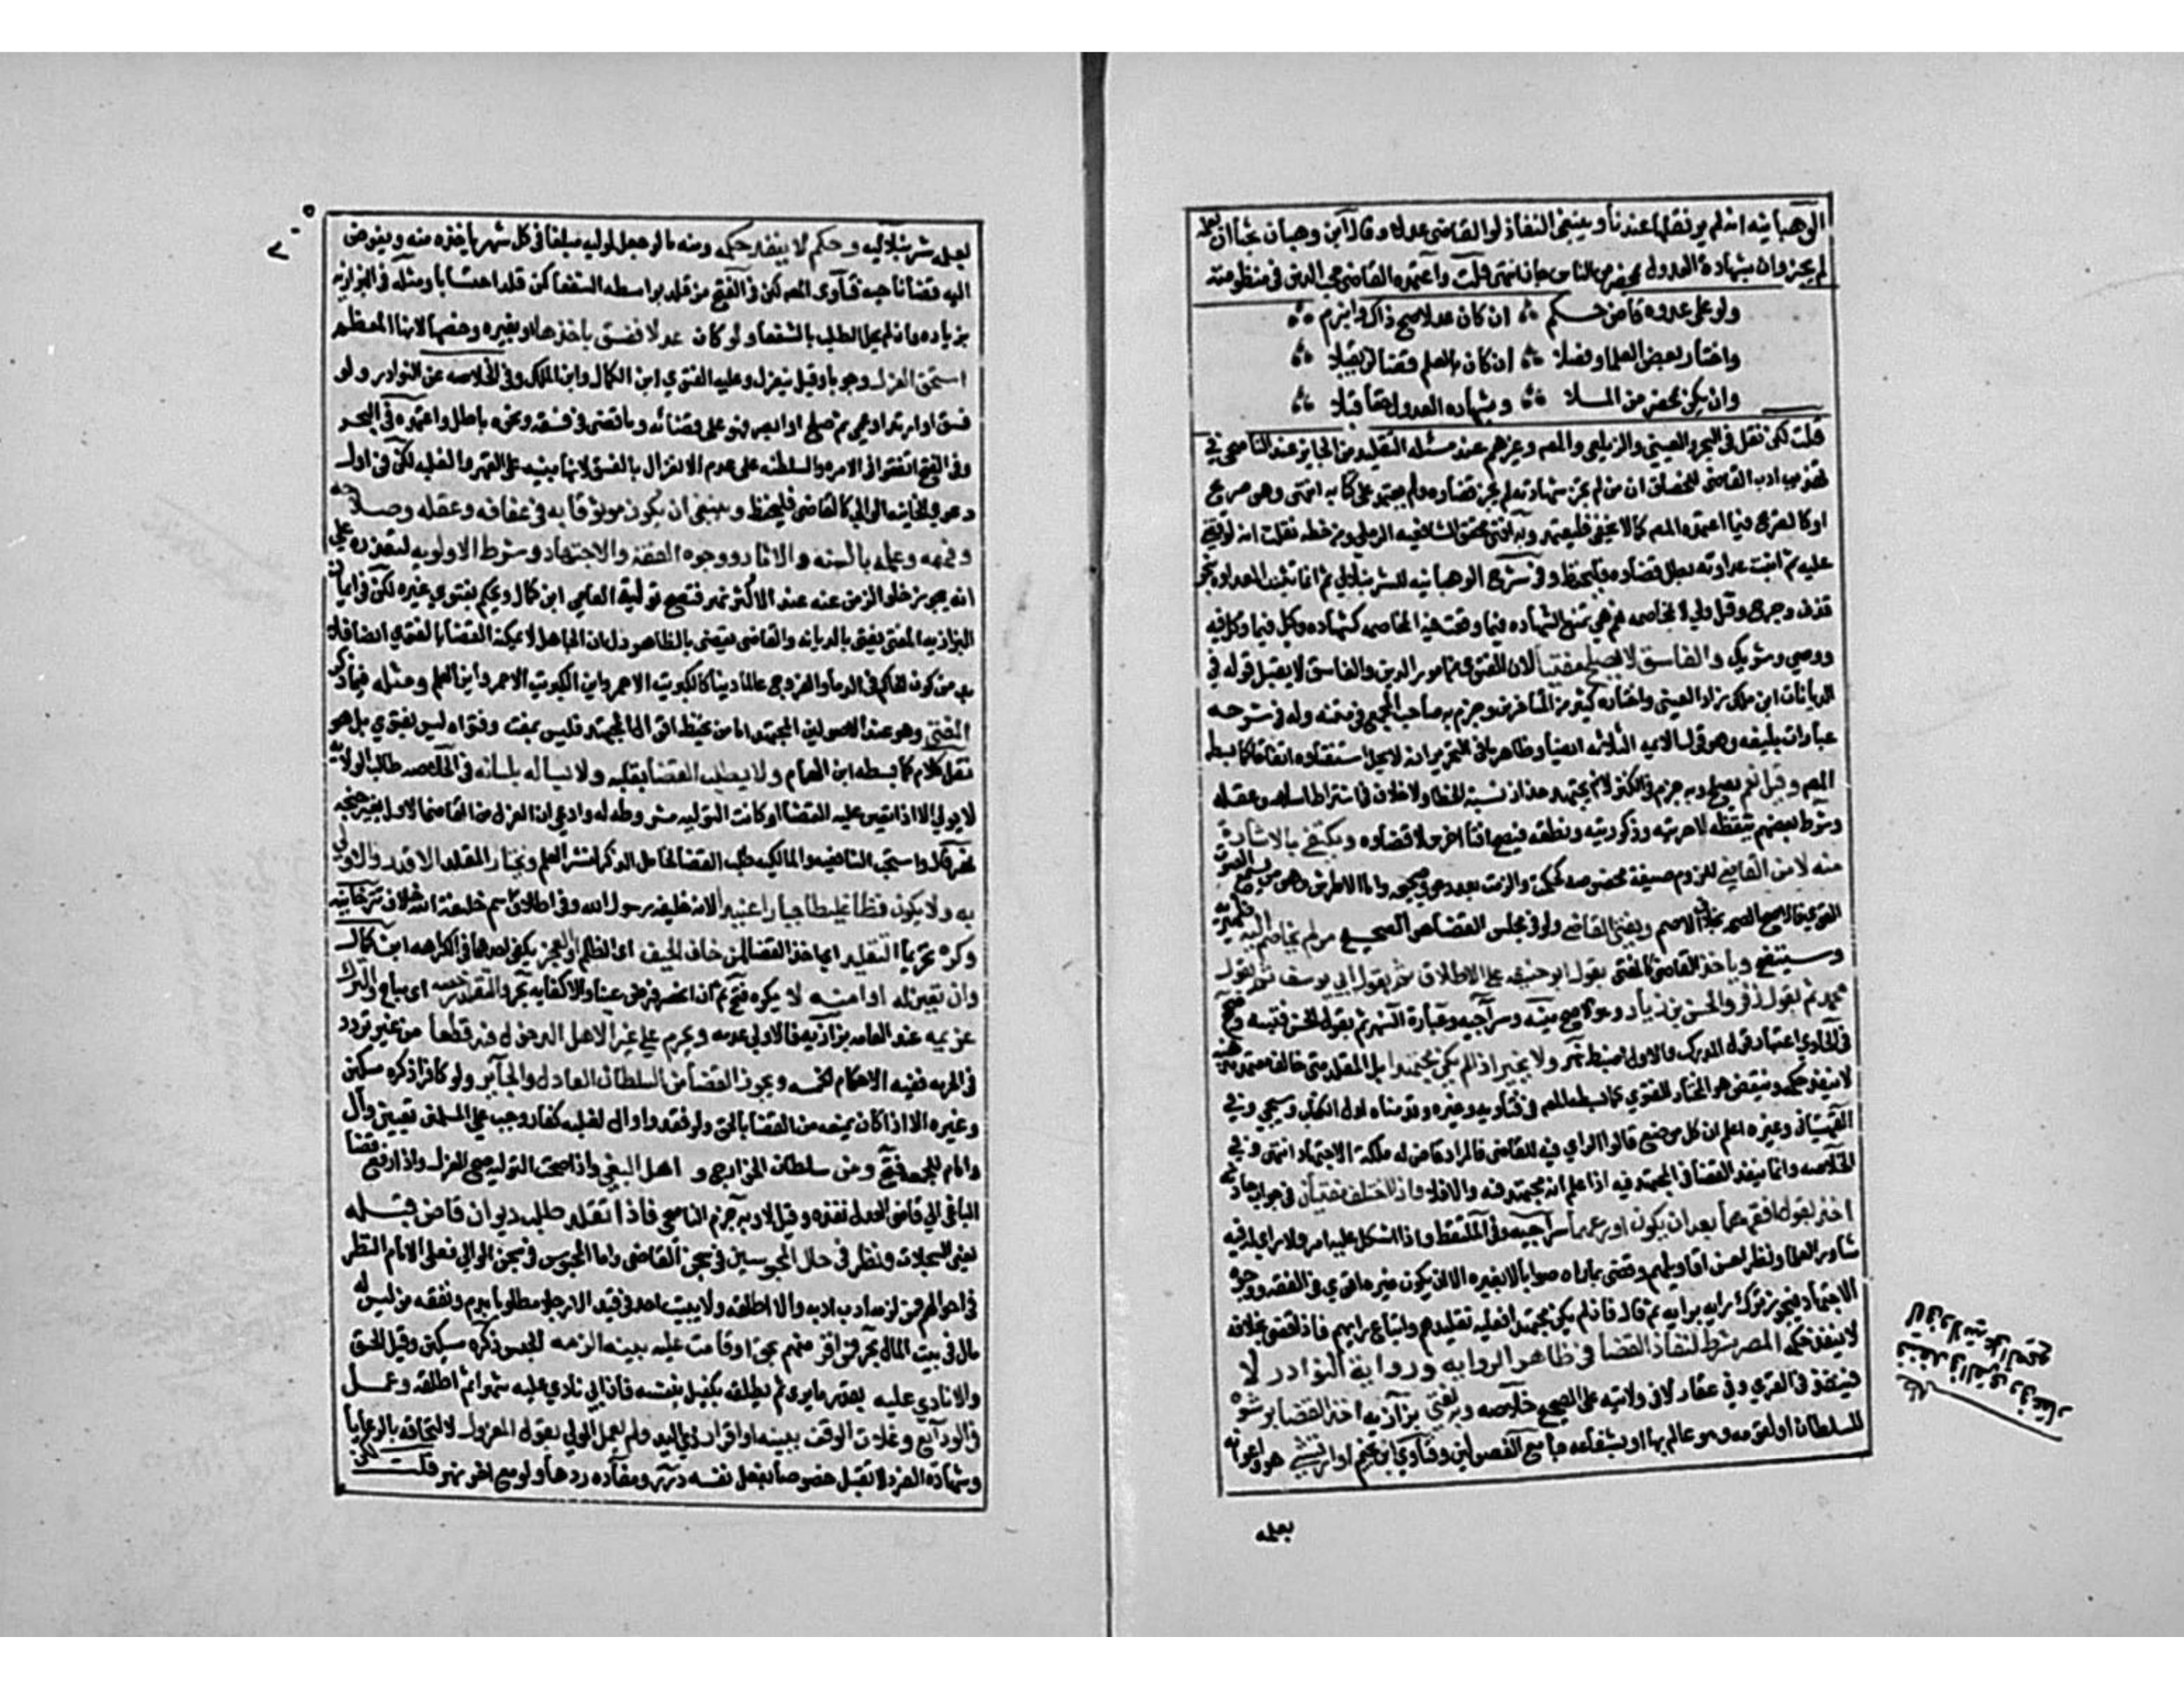 الوهبانيه انه لم يرد نقلها عندنا وينبغي النفاذ لو القاضي عدلا وقال ابن وهبان بحثا ان بعلمه
لم يجز وان بشهادة العدول بمحضر من الناس جاز انتهى قلت واعتمده القاضي محب الدين في منظومته
ولو على عدوه قاض حكم ان كان عدلا صح ذاك وانبرم
واختار بعض العلما وفصلا ان كان بالعلم قضا لن يقبلا
وان يكن بمحضر من الملا وبشهاده العدول قبلا
قلت لكن نقل في البحر والعيني والزيلعي والمص وغيرهم عند مسئله التقليد من الجاير عند الناصحي في
تهذيب ادب القاضي للخصاف ان من لم تجز شهادته لم يجز قضاوه ولم يعتمد على كتابه انتهى وهو صريح
او كالصريح فيما اعتمده المص كما لا يخفى فليعتمد وبه افتى محقق الشافعيه الرملي ومن خطه نقلت انه لو قضى
عليه ثم اثبت عداوته بطل قضاوه فليحفظ وفي شرح الوهبانيه للشرنبلالي ثم انما تثبت العداوه بنحو
قذف وجرح وقتل ولي لا بمخاصمه نعم هي تمنع الشهاده فيما وقعت فيه المخاصمه كشهاده وكيل فيما وكل فيه
ووصي وشريك والفاسق لا يصلح مفتيا لان الفتوى من امور الدين والفاسق لا يقبل قوله في
الديانات ابن ملك زاد العيني واختاره كثير من المتاخرين وجزم به صاحب المجمع في متنه وله في شرحه
عبارات بليغه وهو قول الايمه الثلاثه ايضا وظاهر ما في التحرير انه لا يحل استفتاوه اتفاقا كما بسطه
المص وقيل نعم يصلح وبه جزم في الكنز لانه يجتهد حذار نسبة الخطا ولا خلاف في اشتراط اسلامه وعقله
وشرط بعضهم تيقظه لا حريته وذكوريته ونطقه فيصح افتا اخرس لا قضاوه ويكتفي بالاشارة
منه لا من القاضي للزوم صيغة مخصوصه كحكمت والزمت بعد دعوى صحيحه واما الاطرش وهو من يسمع الصوت
القوي فالاصح الصحه بخلاف الاصم ويفتي القاضي ولو في مجلس القضا هو الصحيح من لم يخاصم اليه ظهيريه
وسيتضح وياخذ القاضي كالمفتي بقول ابو حنيفه على الاطلاق ثم بقول ابي يوسف ثم بقول
محمد ثم بقول زفر والحسن بن زياد وهو الاصح منيه وسراجيه وعبارة النهر ثم بقول الحسن فتنبه وصحح
في الحاوي اعتبار قوة المدرك والاول اضبط نهر ولا يخير اذا لم يكن مجتهدا بل المقلد متى خالف معتمد مذهبه
لا ينفذ حكمه وينقض هو المختار للفتوى كما بسطه المص في فتاويه وغيره وقدمناه اول الكتاب وسيجي وفي
القهستاني وغيره اعلم ان كل موضع قالوا الراي فيه للقاضي فالمراد قاض له ملكة الاجتهاد انتهى وفي
الخلاصه وانما ينفذ القضا في المجتهد فيه اذا علم انه مجتهد فيه والا فلا واذا اختلف مفتيان في جواب حادثه
اخذ بقول افقههما بعد ان يكون اورعهما سراجيه وفي الملتقط واذا اشكل عليه امر ولا راي له فيه
شاور العلما ونظر احسن اقاويلهم وقضى بما راه صوابا لا بغيره الا ان يكون غيره اقوى في الفقه ووجوه
الاجتهاد فيجوز ترك رايه برايه ثم قال فان لم يكن مجتهدا فعليه تقليدهم واتباع رايهم فاذا قضى بخلافه
لا ينفذ حكمه المصر شرط لنفاذ القضا في ظاهر الروايه ورواية النوادر لا
فينفذ في القرى وفي عقار لا في ولايته على الصحيح خلاصه وبه يفتى بزازيه اخذ القضا برشوه
للسلطان او لقومه وهو عالم بها او بشفاعه جامع الفصولين وفتاوي ابن نجيم او ارتشى هو واعوانه
بعلمه
بعلمه شرنبلاليه وحكم لا ينفذ حكمه ومنه ما لو جعل لموليه مبلغا في كل شهر ياخذه منه ويفوض
اليه قضا ناحيه فتاوى المص لكن في الفتح من قلد بواسطه الشفعا كمن قلد احتسابا ومثله في البزازيه
بزياده وان لم يحل الطلب بالشفعا ولو كان عدلا ففسق باخذها او بغيره وخصها لانها المعظم
استحق العزل وجوبا وقيل ينعزل وعليه الفتوي ابن الكمال وابن الملك وفي الخلاصه عن النوادر ولو
فسق او ارتد او عمي ثم صلح او ابصر فهو على قضائه وما قضى في فسقه ونحوه باطل واعتمده في البحر
وفي الفتح اتفقوا في الامره والسلطنه على عدم الانعزال بالفسق لانها مبنيه على القهر والغلبه لكن في اول
دعوى الخانيه الوالي كالقاضي فليحفظ وينبغي ان يكون موثوقا به في عفافه وعقله وصلاحه
وفهمه وعلمه بالسنه والاثار ووجوه الفقه والاجتهاد شرط الاولويه لتعذره على
انه يجوز خلو الزمن عنه عند الاكثر نهر فتصح تولية العامي ابن كمال ويحكم بفتوى غيره لكن في ايمان
البزازيه المفتي يفتي بالديانه والقاضي يقضي بالظاهر دل ان الجاهل لا يمكنه القضا بالفتوى ايضا فلا
بد من كون الحاكم في الدما والفروج عالما دينا كالكبريت الاحمر واين الكبريت الاحمر واين العلم ومثله فيما ذكر
المفتي وهو عند الاصولين المجتهد اما من يحفظ اقوال المجتهد فليس بمفت وفتواه ليس بفتوي بل هو
نقل كلام كما بسطه ابن الهمام ولا يطلب القضا بقلبه ولا يساله بلسانه في الخلاصه طالب الولايه
لا يولى الا اذا تعين عليه القضا او كانت التوليه مشروطه له او ادعى ان العزل من القاضي الاول بغير جنحه
نهر قال واستحب الشافعيه والمالكيه طلب القضا لخامل الذكر لنشر العلم ويختار المقلد الاقدر والاولى
به ولا يكون فظا غليظا جبارا عنيدا لانه خليفه رسول الله وفي اطلاق اسم خليفة الله خلاف تترخانيه
وكره تحريما التقليد اي اخذ القضا لمن خاف الحيف اي الظلم او العجز يكفي احدهما في الكراهه ابن كمال
وان تعين له او امنه لا يكره فتح ثم ان انحصر فرض عينا والا كفايه بحر والتقلد رخصه اي مباح والترك
عزيمه عند العامه بزازيه فالاولى عدمه ويحرم على غير الاهل الدخول فيه قطعا من غير تردد
في الحرمه ففيه الاحكام الخمسه ويجوز القضا من السلطان العادل والجاير ولو كافرا ذكره مسكين
وغيره الا اذا كان يمنعه عن القضا بالحق ولو فقد وال لغلبه كفار وجب على المسلمين تعيين وال
وامام للجمعه فتح ومن سلطان الخوارج و اهل البغي واذا صحت التوليه صح العزل واذا رفع قضا
الباغي الى قاضي العدل نفذه وقيل لا وبه جزم الناصحي فاذا تقلد طلب ديوان قاض قبله
يعني السجلات ونظر في حال المحبوسين في سجن القاضي واما المحبوس في سجن الوالي فعلى الامام النظر
في احوالهم فمن لزمه ادب ادبه والا اطلقه ولا يبيت احد في قيد الا رجل مطلوبا بدم ونفقه من ليس له
مال في بيت المال بحر فمن اقر منهم بحق او قامت عليه بينه الزمه الحبس ذكره مسكين وقيل الحق
والا نادي عليه بقدر ما يرى ثم يطلقه بكفيل بنفسه فان ابى نادي عليه شهرا ثم اطلقه وعمل
في الودائع وغلات الوقف ببينه او اقرار ذي اليد ولم يعمل المولى بقول المعزول لالتحاقه بالرعايا
وشهادة الفرد لا تقبل خصوصا بفعل نفسه درر ومفاده ردها ولو مع اخر نهر قلت لكن